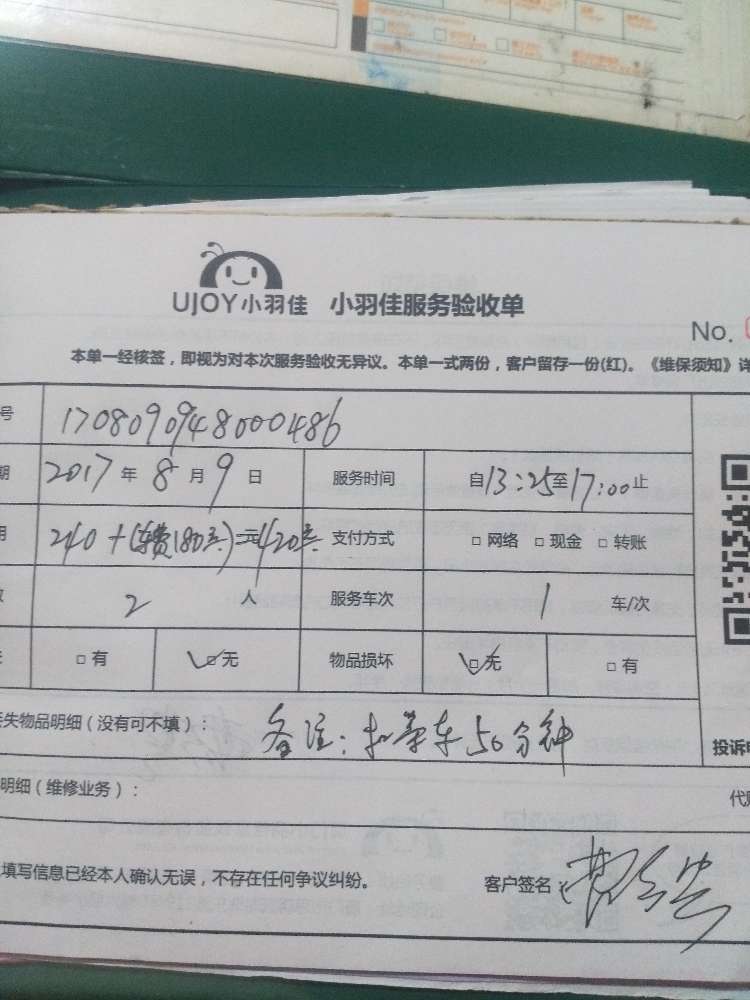 UJOY小羽佳 小羽佳服务验收单
No.
本单一经核签，即视为对本次服务验收无异议。本单一式两份，客户留存一份(红)。《维保须知》详
号 1708090948000486
期 2017年8月9日 服务时间 自13:25至17:00止
240+(车费180元)元420元 支付方式 □网络 □现金 □转账
2人 服务车次 1车/次
□有 □无 物品损坏 □无 □有
失物品明细（没有可不填）： 备注: 扣等车50分钟
投诉电
明细（维修业务）：
填写信息已经本人确认无误，不存在任何争议纠纷。 客户签名：